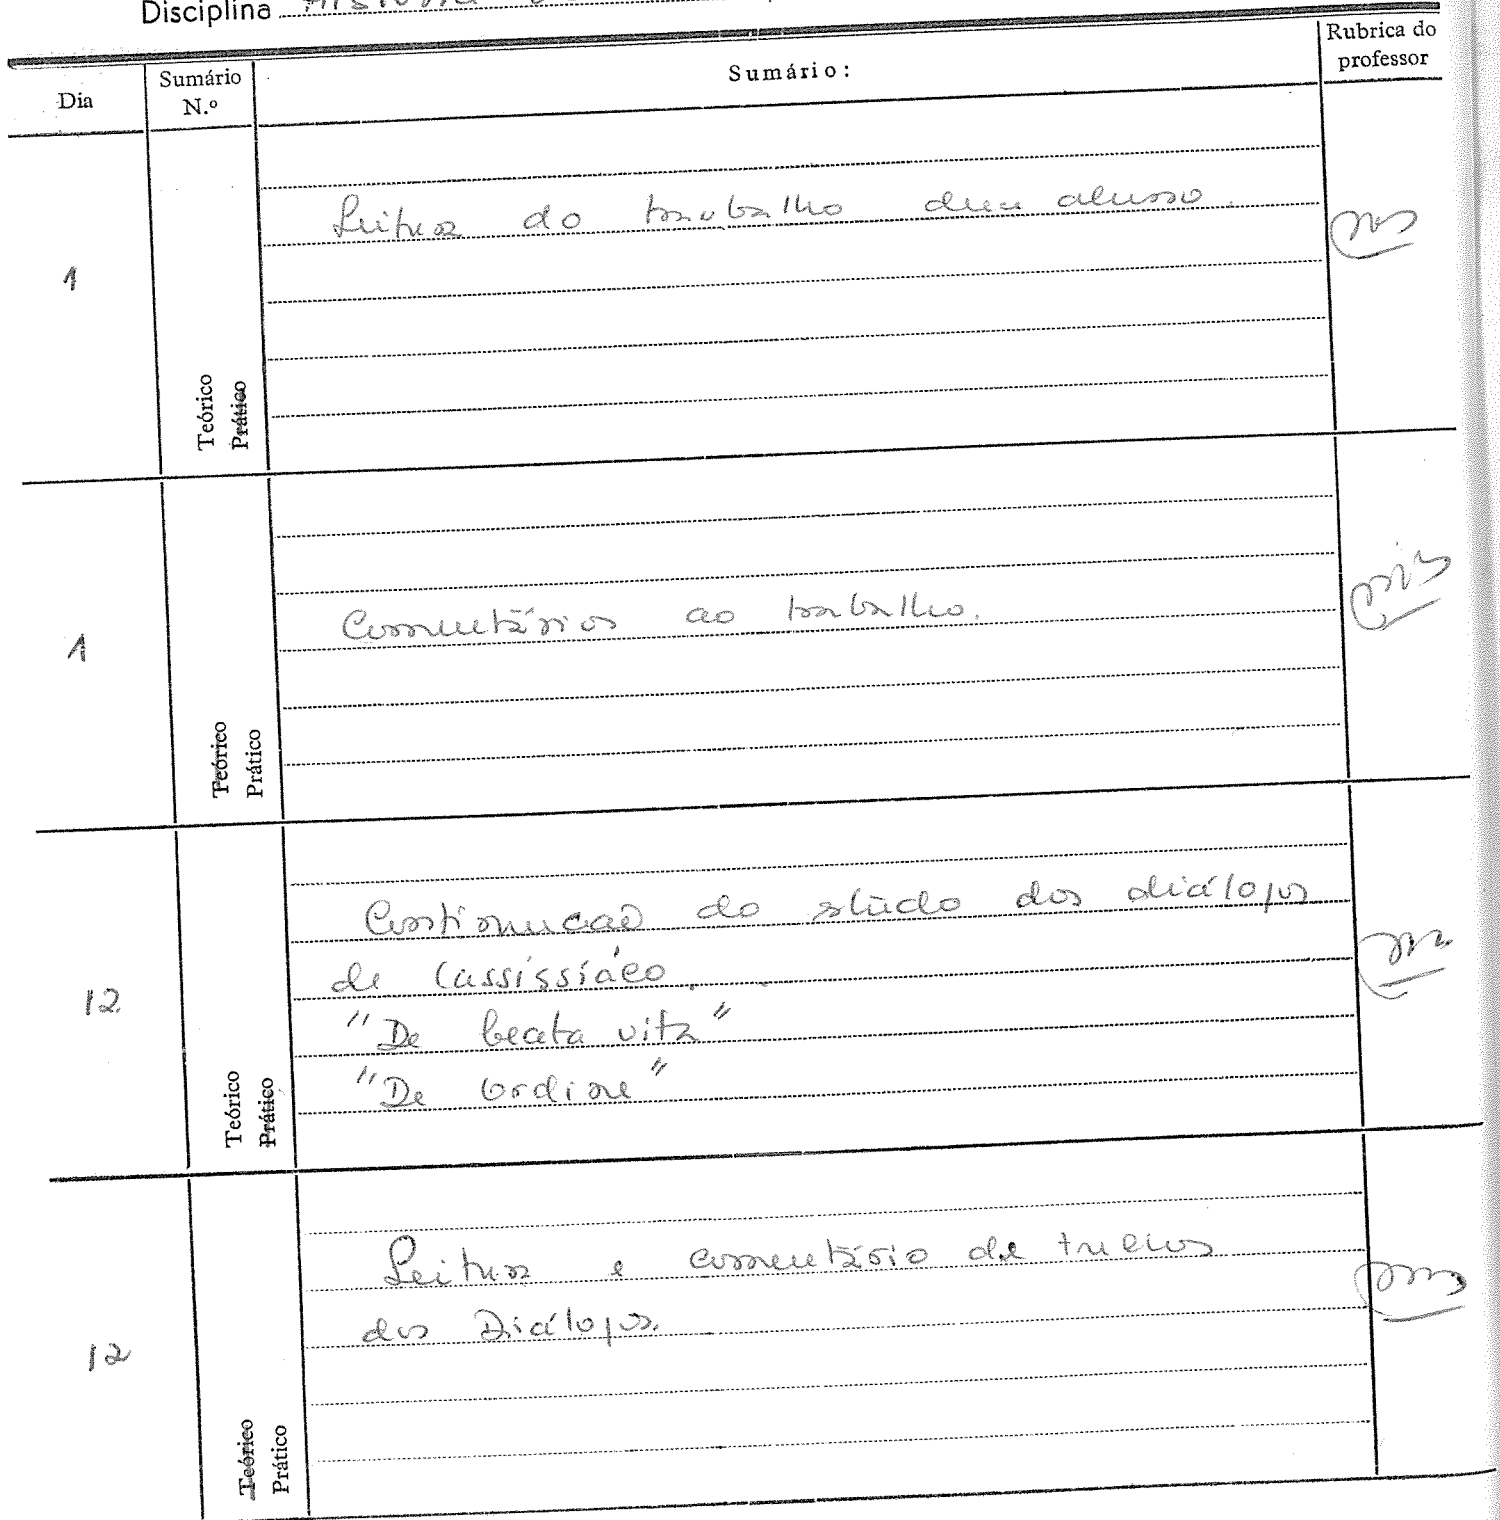 Disciplina
Dia
Sumário N.º
Sumário:
Rubrica do professor
1
Teórico
Prático
Leitura do trabalho dum aluno.
1
Teórico
Prático
Comentários ao trabalho.
12
Teórico
Prático
Continuação do estudo dos diálogos
de Cassissíaco.
"De beata vita"
"De Ordine"
12
Teórico
Prático
Leitura e comentário de trechos
dos Diálogos.